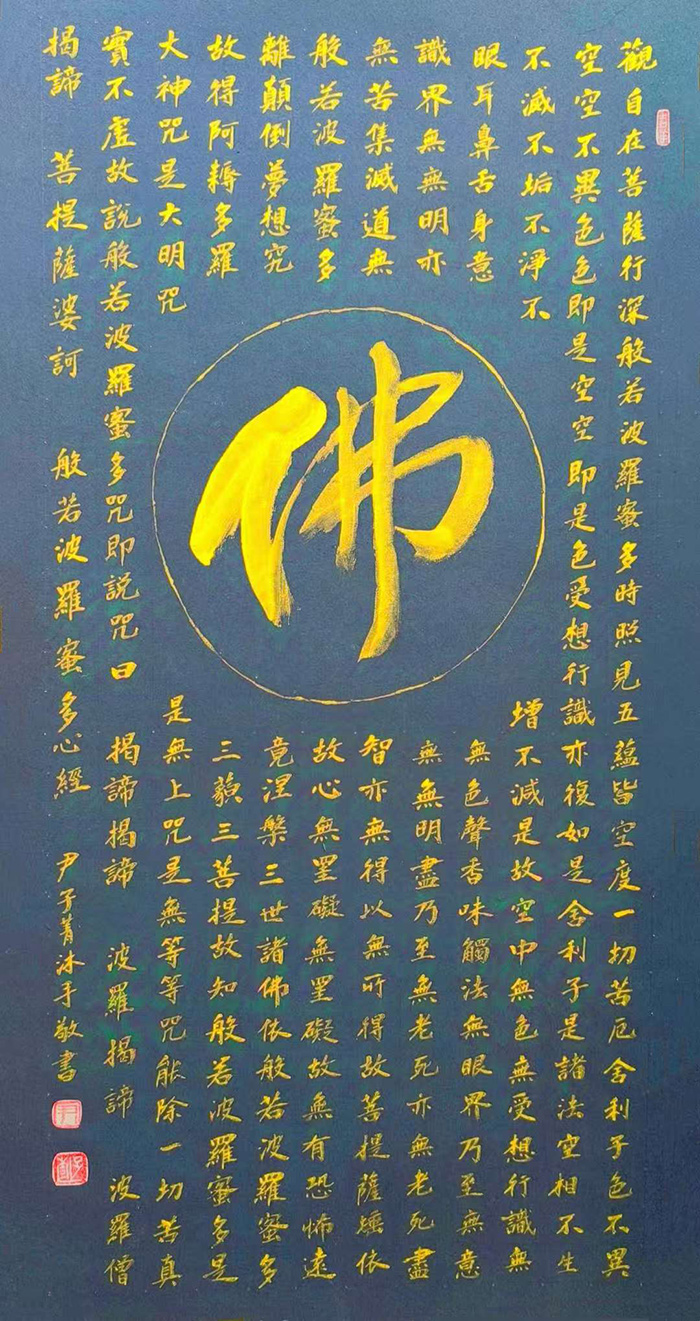 觀自在菩薩行深般若波羅蜜多時照見五蘊皆空度一切苦厄舍利子色不異
空空不異色色即是空空即是色受想行識亦復如是舍利子是諸法空相不生
不滅不垢不淨不 增不減是故空中無色無受想行識無
眼耳鼻舌身意 無色聲香味觸法無眼界乃至無意
識界無無明亦 無無明盡乃至無老死亦無老死盡
無苦集滅道無 智亦無得以無所得故菩提薩埵依
般若波羅蜜多 故心無罣礙無罣礙故無有恐怖遠
離顛倒夢想究 竟涅槃三世諸佛依般若波羅蜜多
故得阿耨多羅 三藐三菩提故知般若波羅蜜多是
大神咒是大明咒 是無上咒是無等等咒能除一切苦真
實不虛故説般若波羅蜜多咒即説咒曰 揭諦揭諦 波羅揭諦 波羅僧
揭諦 菩提薩婆訶 般若波羅蜜多心經 尹子菁沐手敬書
佛